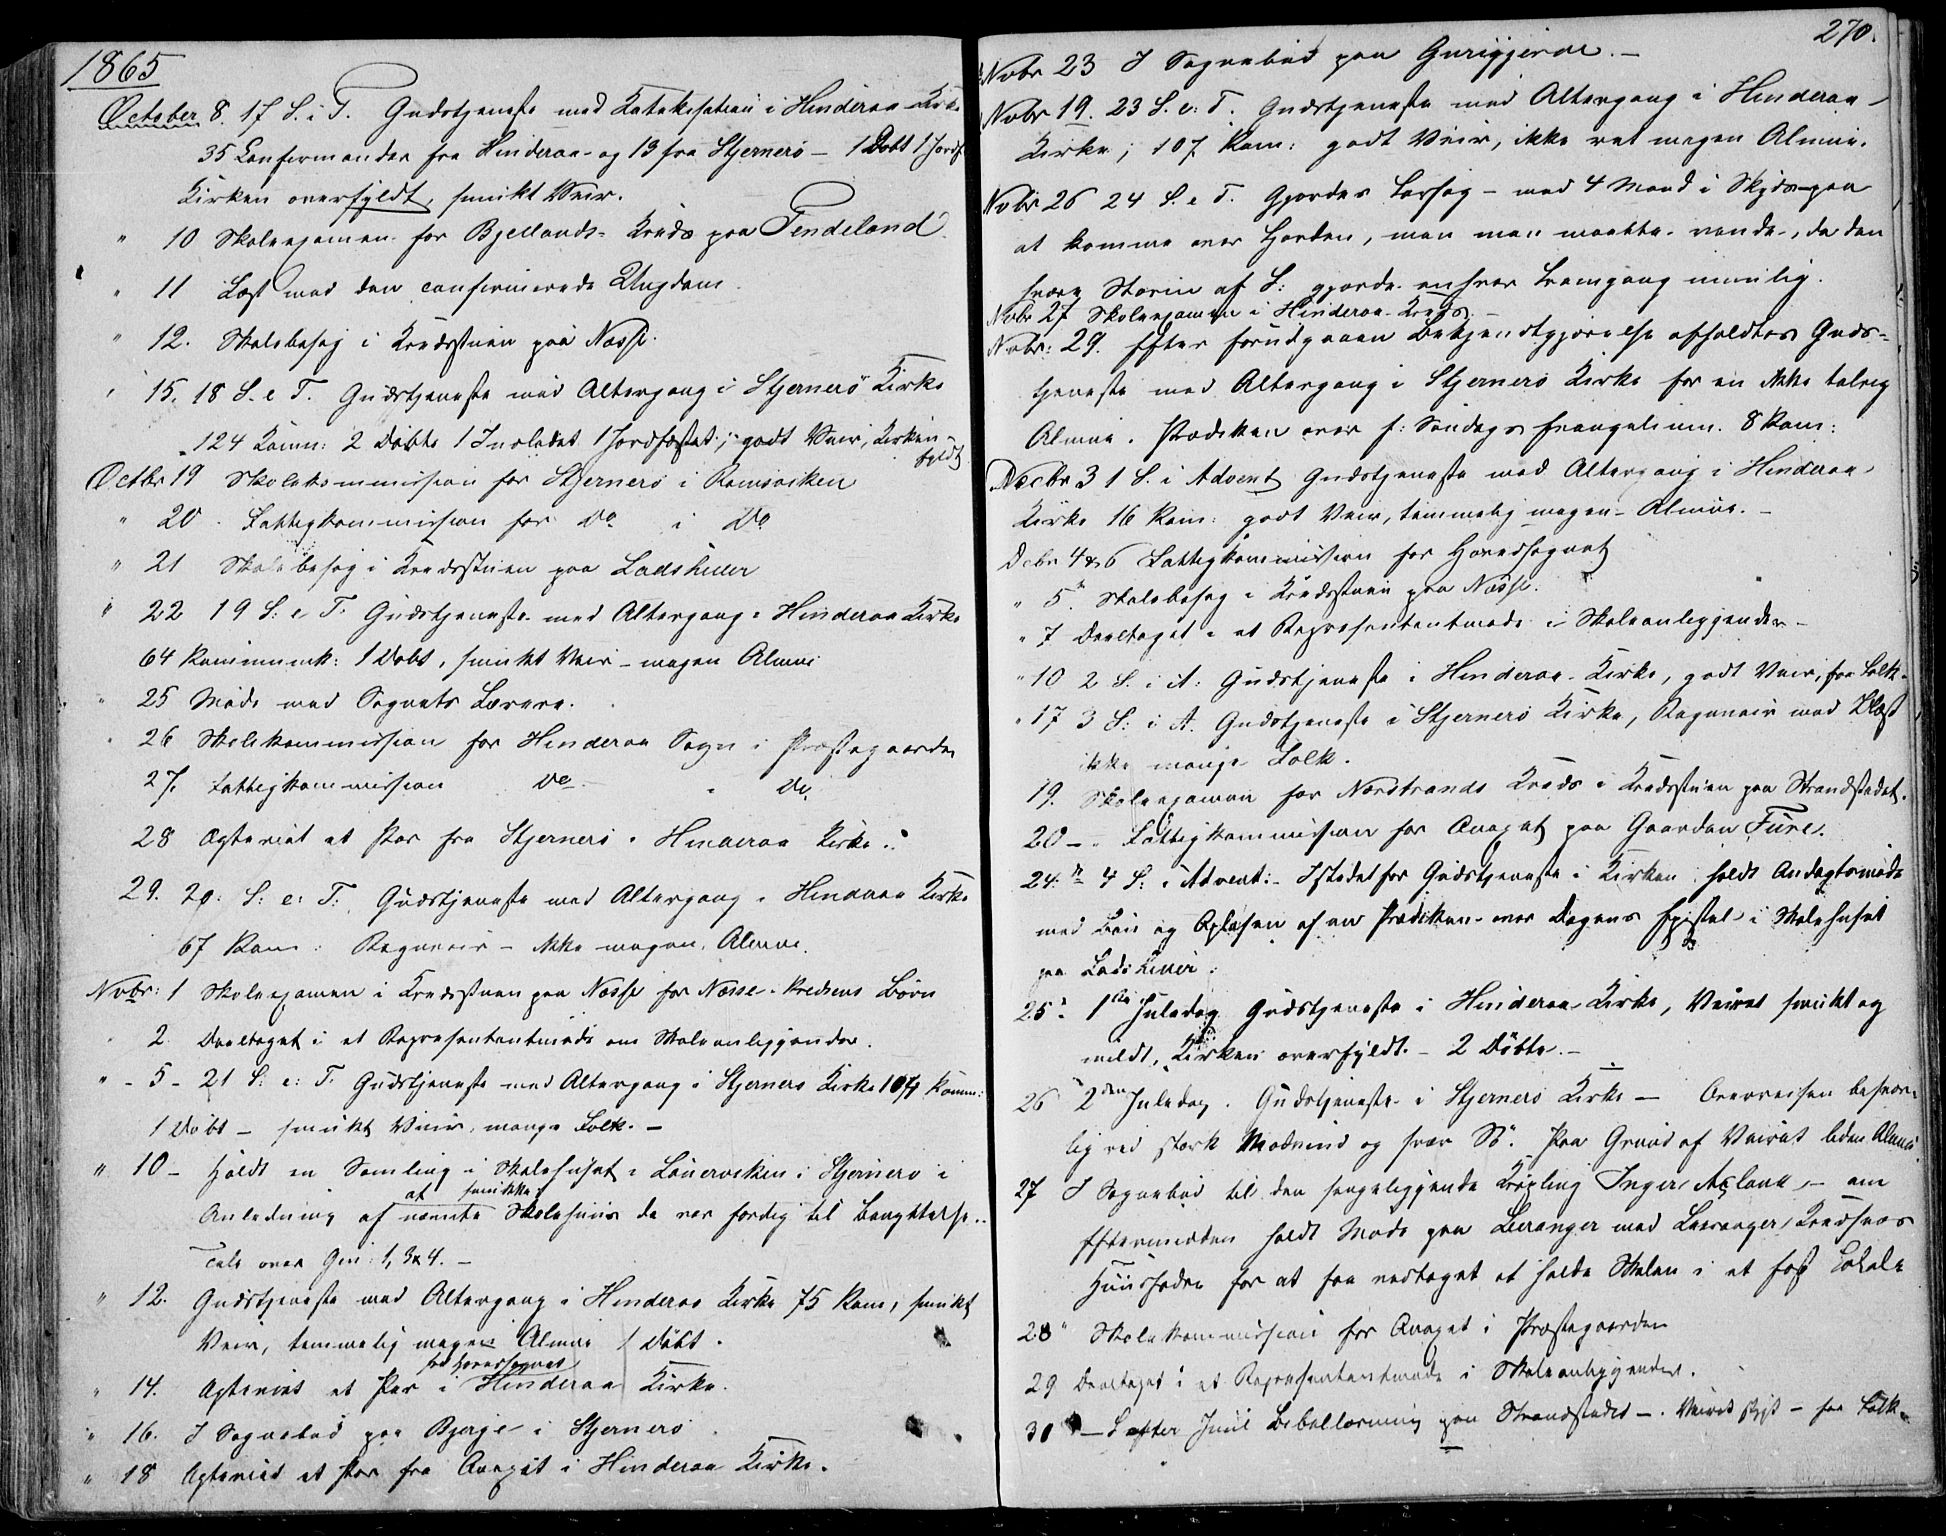 1865
October 8. 17 S. i T. Gudstjeneste med Katekisation i Hinderaa Kirke
35 Confirmander fra Hinderaa og 13 fra Stjernerö – 1 Döbt 1 Jordf.
Kirken overfyldt, smukt Veir.
" 10 Skoleexamen for Bjellands-Kreds paa Tendeland
" 11 Læst med den confirmerede Ungdom.
" 12. Skolebesøg i Kredsstuen paa Næsse.
" 15. 18 S. e T. Gudstjeneste med Altergang i Stjernerö Kirke
124 Komm: 2 Döbte 1 Indledet 1 Jordfæstet; godt Veir, Kirken
fyldt
Octbr 19 Skolekommission for Stjernerö i Ramsviken
" 20 Fattigkommission for do i do
" 21 Skolebesøg i Kredsstuen paa Ladshuer
" 22 19 S: e T. Gudstjeneste med Altergang i Hinderaa Kirke
64 Kommunik: 1 Döbt, smukt Veir – megen Almue
" 25 Möde med Sognets Lærere.
" 26 Skolekommission for Hinderaa Sogn i Præstegaarden
27. Fattigkommission do " do.
28 Ægteviet et Par fra Stjernerö i Hinderaa Kirke.
29. 20. S: e: T: Gudstjeneste med Altergang i Hinderaa Kirke
67 Kom: Regnveir – ikke megen Almue.
Novbr: 1 Skoleexamen i Kredsstuen paa Næsse for Næsse-Kredsens Börn
" 2. Deeltaget i et Repræsentantmöde om Skoleanliggender.
" - 5 - 21 S: e: T. Gudstjeneste med Altergang i Stjernerö Kirke 104 Komm:
1 Döbt – smukt Veir, mange Folk. –
" 10 – Holdt en Samling i Skolehuset i i Stjernerö i
Anledning af at nævnte smukke Skolehuus da var færdig til Benyttelse.
Tale over Gen: 1, 3 & 4. –
" 12. Gudstjeneste med Altergang i Hinderaa Kirke 75 Kom, smukt
Veir, temmelig megen Almue 1 Döbt.
" 14. Ægteviet et Par fra Hovedsognet i Hinderaa Kirke.
" 16. I Sognebud paa Bjerge i Stjernerö
" 18 Ægteviet et Par fra Annexet i Hinderaa Kirke.
270.
Nvbr 23 I Sognebud paa
Nvbr 19. 23 S. e. T. Gudstjeneste med Altergang i Hinderaa
Kirke; 107 Kom: godt Veir, ikke ret megen Almue.
Nvbr 26 24 S. e T. Gjordes Forsøg – med 4 Mand i Skyds paa
at komme over Fjorden, men man maatte vende, da den
svære Storm af S: gjorde enhver Fremgang umulig.
Nvbr 27 Skoleexamen i Hinderaa-Kreds –
Nvbr: 29. Efter forudgaaen Bekjendtgjørelse afholdtes Guds-
tjeneste med Altergang i Stjernerö Kirke for en ikke talrig
Almue. Prædiken over f: Söndags Evangelium. 8 Kom:
Decbr 3 1 S. i Advent Gudstjeneste med Altergang i Hinderaa
Kirke 16 Kom: godt Veir, temmelig megen Almue. –
Dcbr 4 & 6 Fattigkommission for Hovedsognet
" 5. Skolebesøg i Kredsstuen paa Næsse.
" 7 Deeltaget i et Repræsentantmöde i Skoleanliggender –
" 10 2 S. i A: Gudstjeneste i Hinderaa Kirke, godt Veir, faa Folk.
" 17 3 S: i A. Gudstjeneste i Stjernerö Kirke, Regnveir med Blæst
ikke mange Folk.
19. Skoleexamen for Nordstrands Kreds i Kredsstuen paa Strandstedet.
20 – Fattigkommission for Annexet paa Gaarden Tuve.
24. 4 S: i Advent. – Istedetfor Gudstjeneste i Kirken holdt Andagtsmöde
med Bön og Oplæsen af en Prædiken over Dagens Epistel i Skolehuset
paa Ladshuer.
25. 1ste Juledag Gudstjeneste i Hinderaa Kirke, Veiret smukt og
mildt, Kirken overfyldt. – 2 Döbte. –
26 2den Juledag. Gudstjeneste i Stjernerö Kirke – Overreisen besvær-
lig ved stærk Modvind og svær Sö. Paa Grund af Veiret liden Almue.
27 I Sognebud til den sengeliggende Kröpling Inger – om
Eftermidden holdt Möde paa med Kredsens
Huusfædre for at faa vedtaget at holde Skolen i et fast Lokale
28 " Skolekommission for Annexet i Præstegaarden
29 Deeltaget i et Repræsentantmöde i Skoleanliggender.
30 – efter Juul Bibellæsning paa Strandstedet –. Veiret stygt – faa Folk.